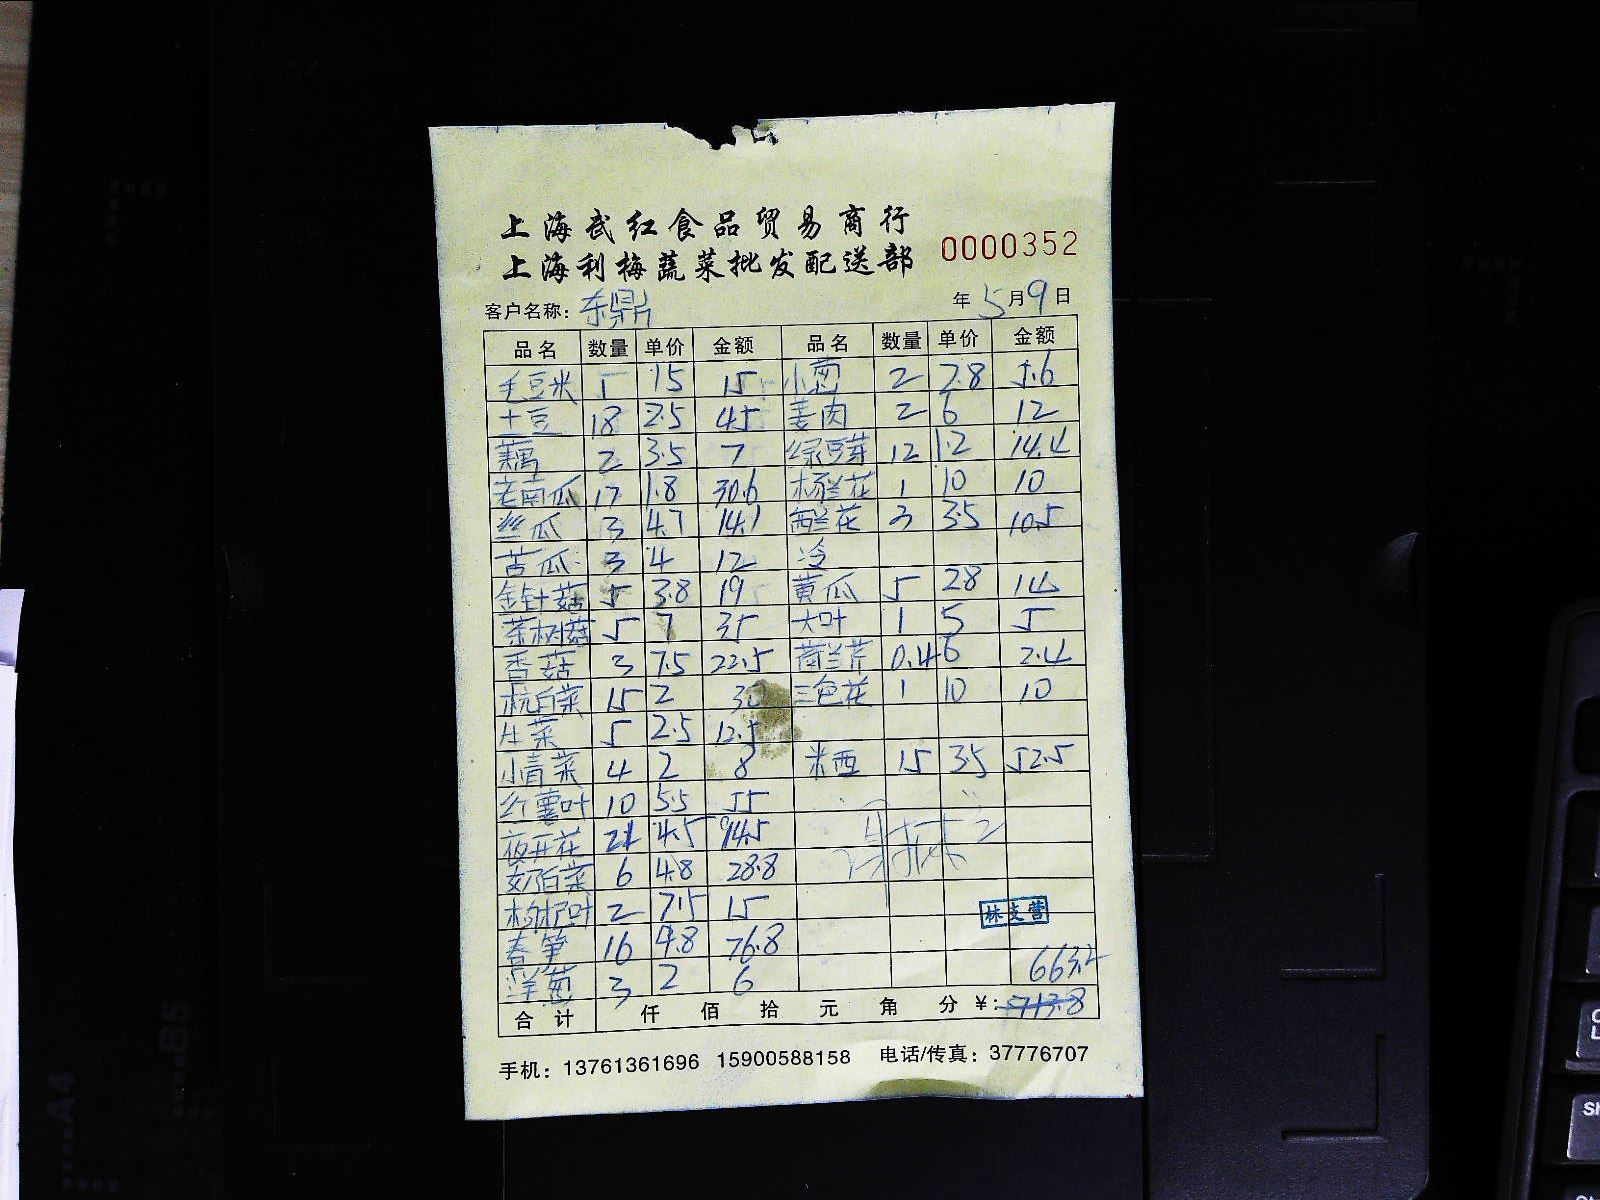 上海武红食品贸易商行
上海利梅蔬菜批发配送部 0000352
客户名称: 东鼎 年5月9日
品名 数量 单价 金额 品名 数量 单价 金额
毛豆米 1 15 15 小葱 2 2.8 5.6
土豆 18 2.5 45 姜肉 2 6 12
藕 2 3.5 7 绿豆芽 12 1.2 14.4
老南瓜 17 1.8 30.6 杨兰花 1 10 10
丝瓜 3 4.7 14.1 西兰花 3 3.5 10.5
苦瓜 3 4 12 冷
金针菇 5 3.8 19 黄瓜 5 28 14
茶树菇 5 7 35 大叶 1 5 5
香菇 3 7.5 22.5 荷兰芹 0.4 6 2.4
杭白菜 15 2 30 三色花 1 10 10
生菜 5 2.5 12.5
小青菜 4 2 8 米西 15 3.5 52.5
红薯叶 10 5.5 55
夜开花 21 4.5 94.5
奶白菜 6 4.8 28.8
枸杞叶 2 7.5 15
林支营
春笋 16 4.8 76.8
洋葱 3 2 6 663.2
合计 仟 佰 拾 元 角 分 ¥: 713.8
手机: 13761361696 15900588158 电话/传真: 37776707
A4
B5